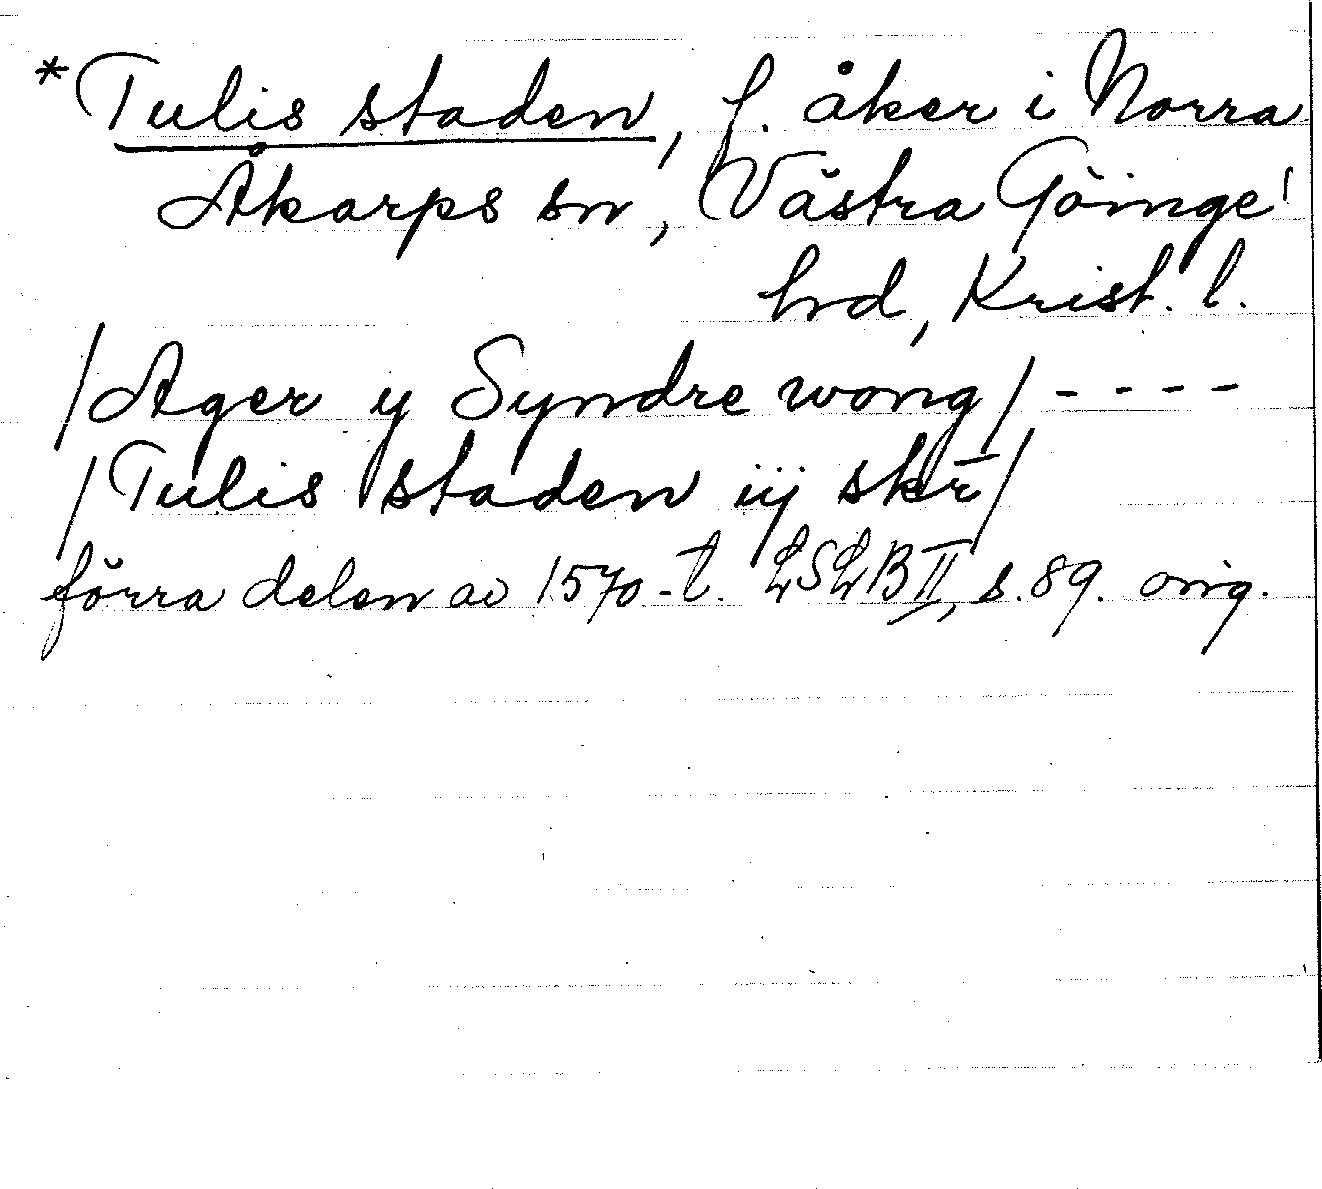 *Tulis staden, f. åker i Norra
Åkarps sn, Västra Göinge
hrd, Krist. l.
/Ager y Syndre wong/ - - - -
/Tulis staden iij skr̄/
förra delen av 1570-t. LSLB II, s. 89. orig.